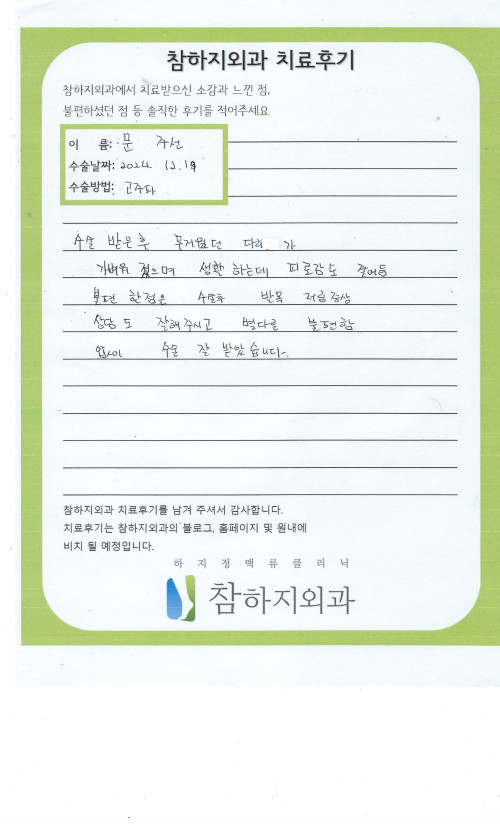 참하지외과 치료후기
참하지외과에서 치료받으신 소감과 느낀 점,
불편하셨던 점 등 솔직한 후기를 적어주세요
이 름: 문 주선
수술날짜: 2024 12.19
수술방법: 고주파
수술 받은후 무거웠던 다리 가
가벼워 졌으며 생활 하는데 피로감도 줄어듬
불편 한점은 수술후 발목 저림증상
상담 도 잘해주시고 별다른 불편함
없이 수술 잘 받았습니다.
참하지외과 치료후기를 남겨 주셔서 감사합니다.
치료후기는 참하지외과의 블로그, 홈페이지 및 원내에
비치 될 예정입니다.
하지정맥류클리닉
참하지외과